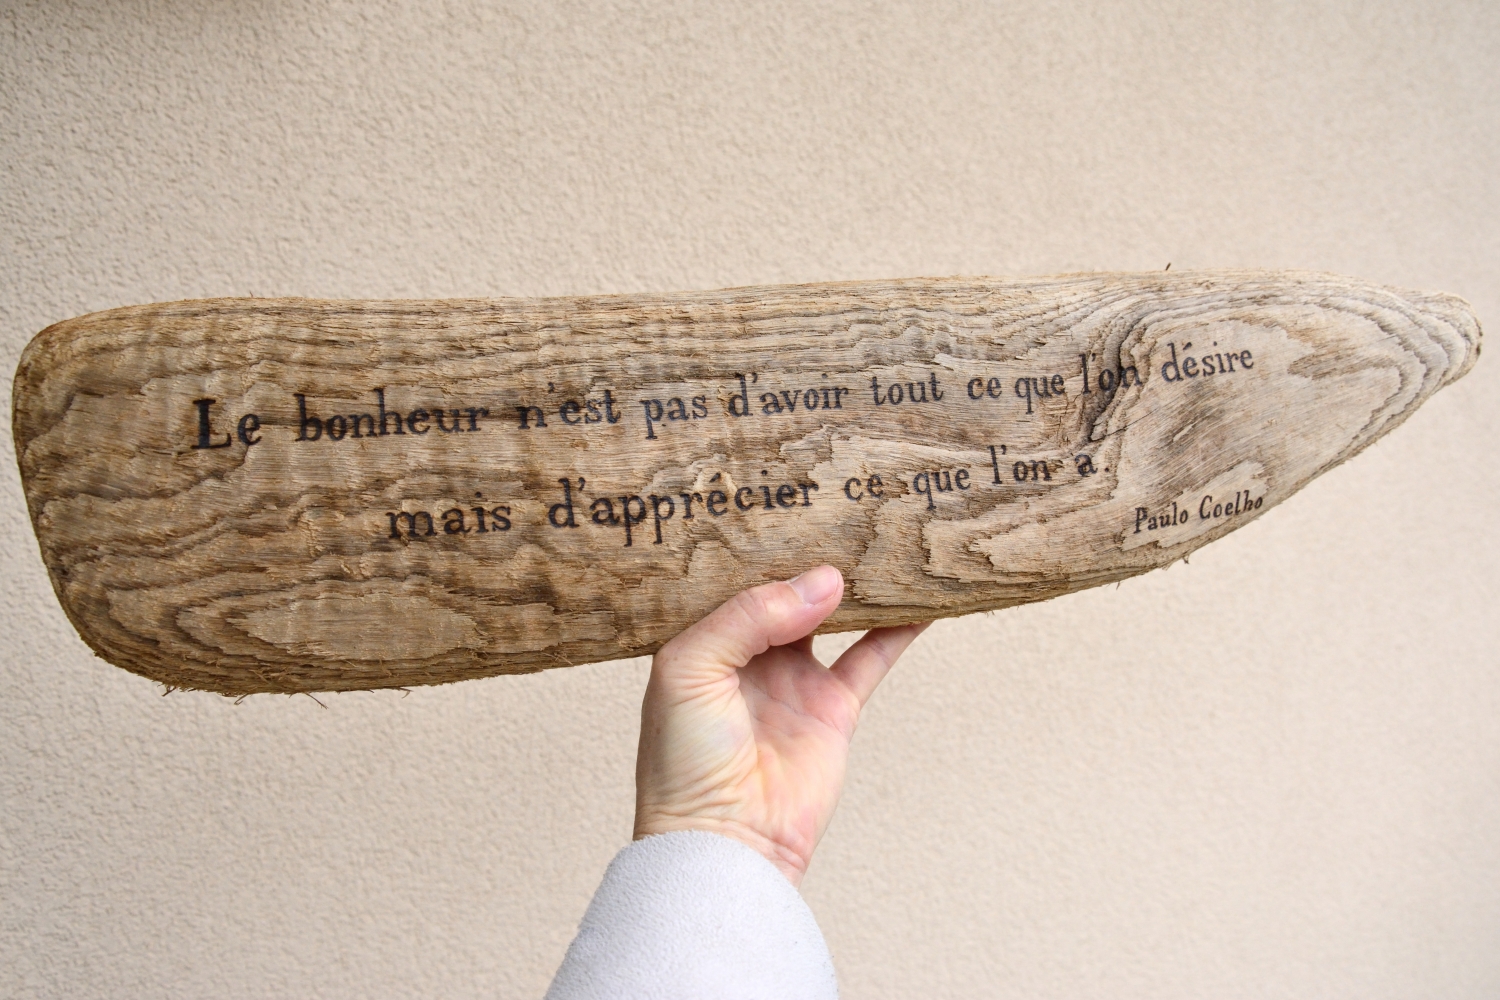 Le bonheur n'est pas d'avoir tout ce que l'on désire
mais d'apprécier ce que l'on a.
Paulo Coelho